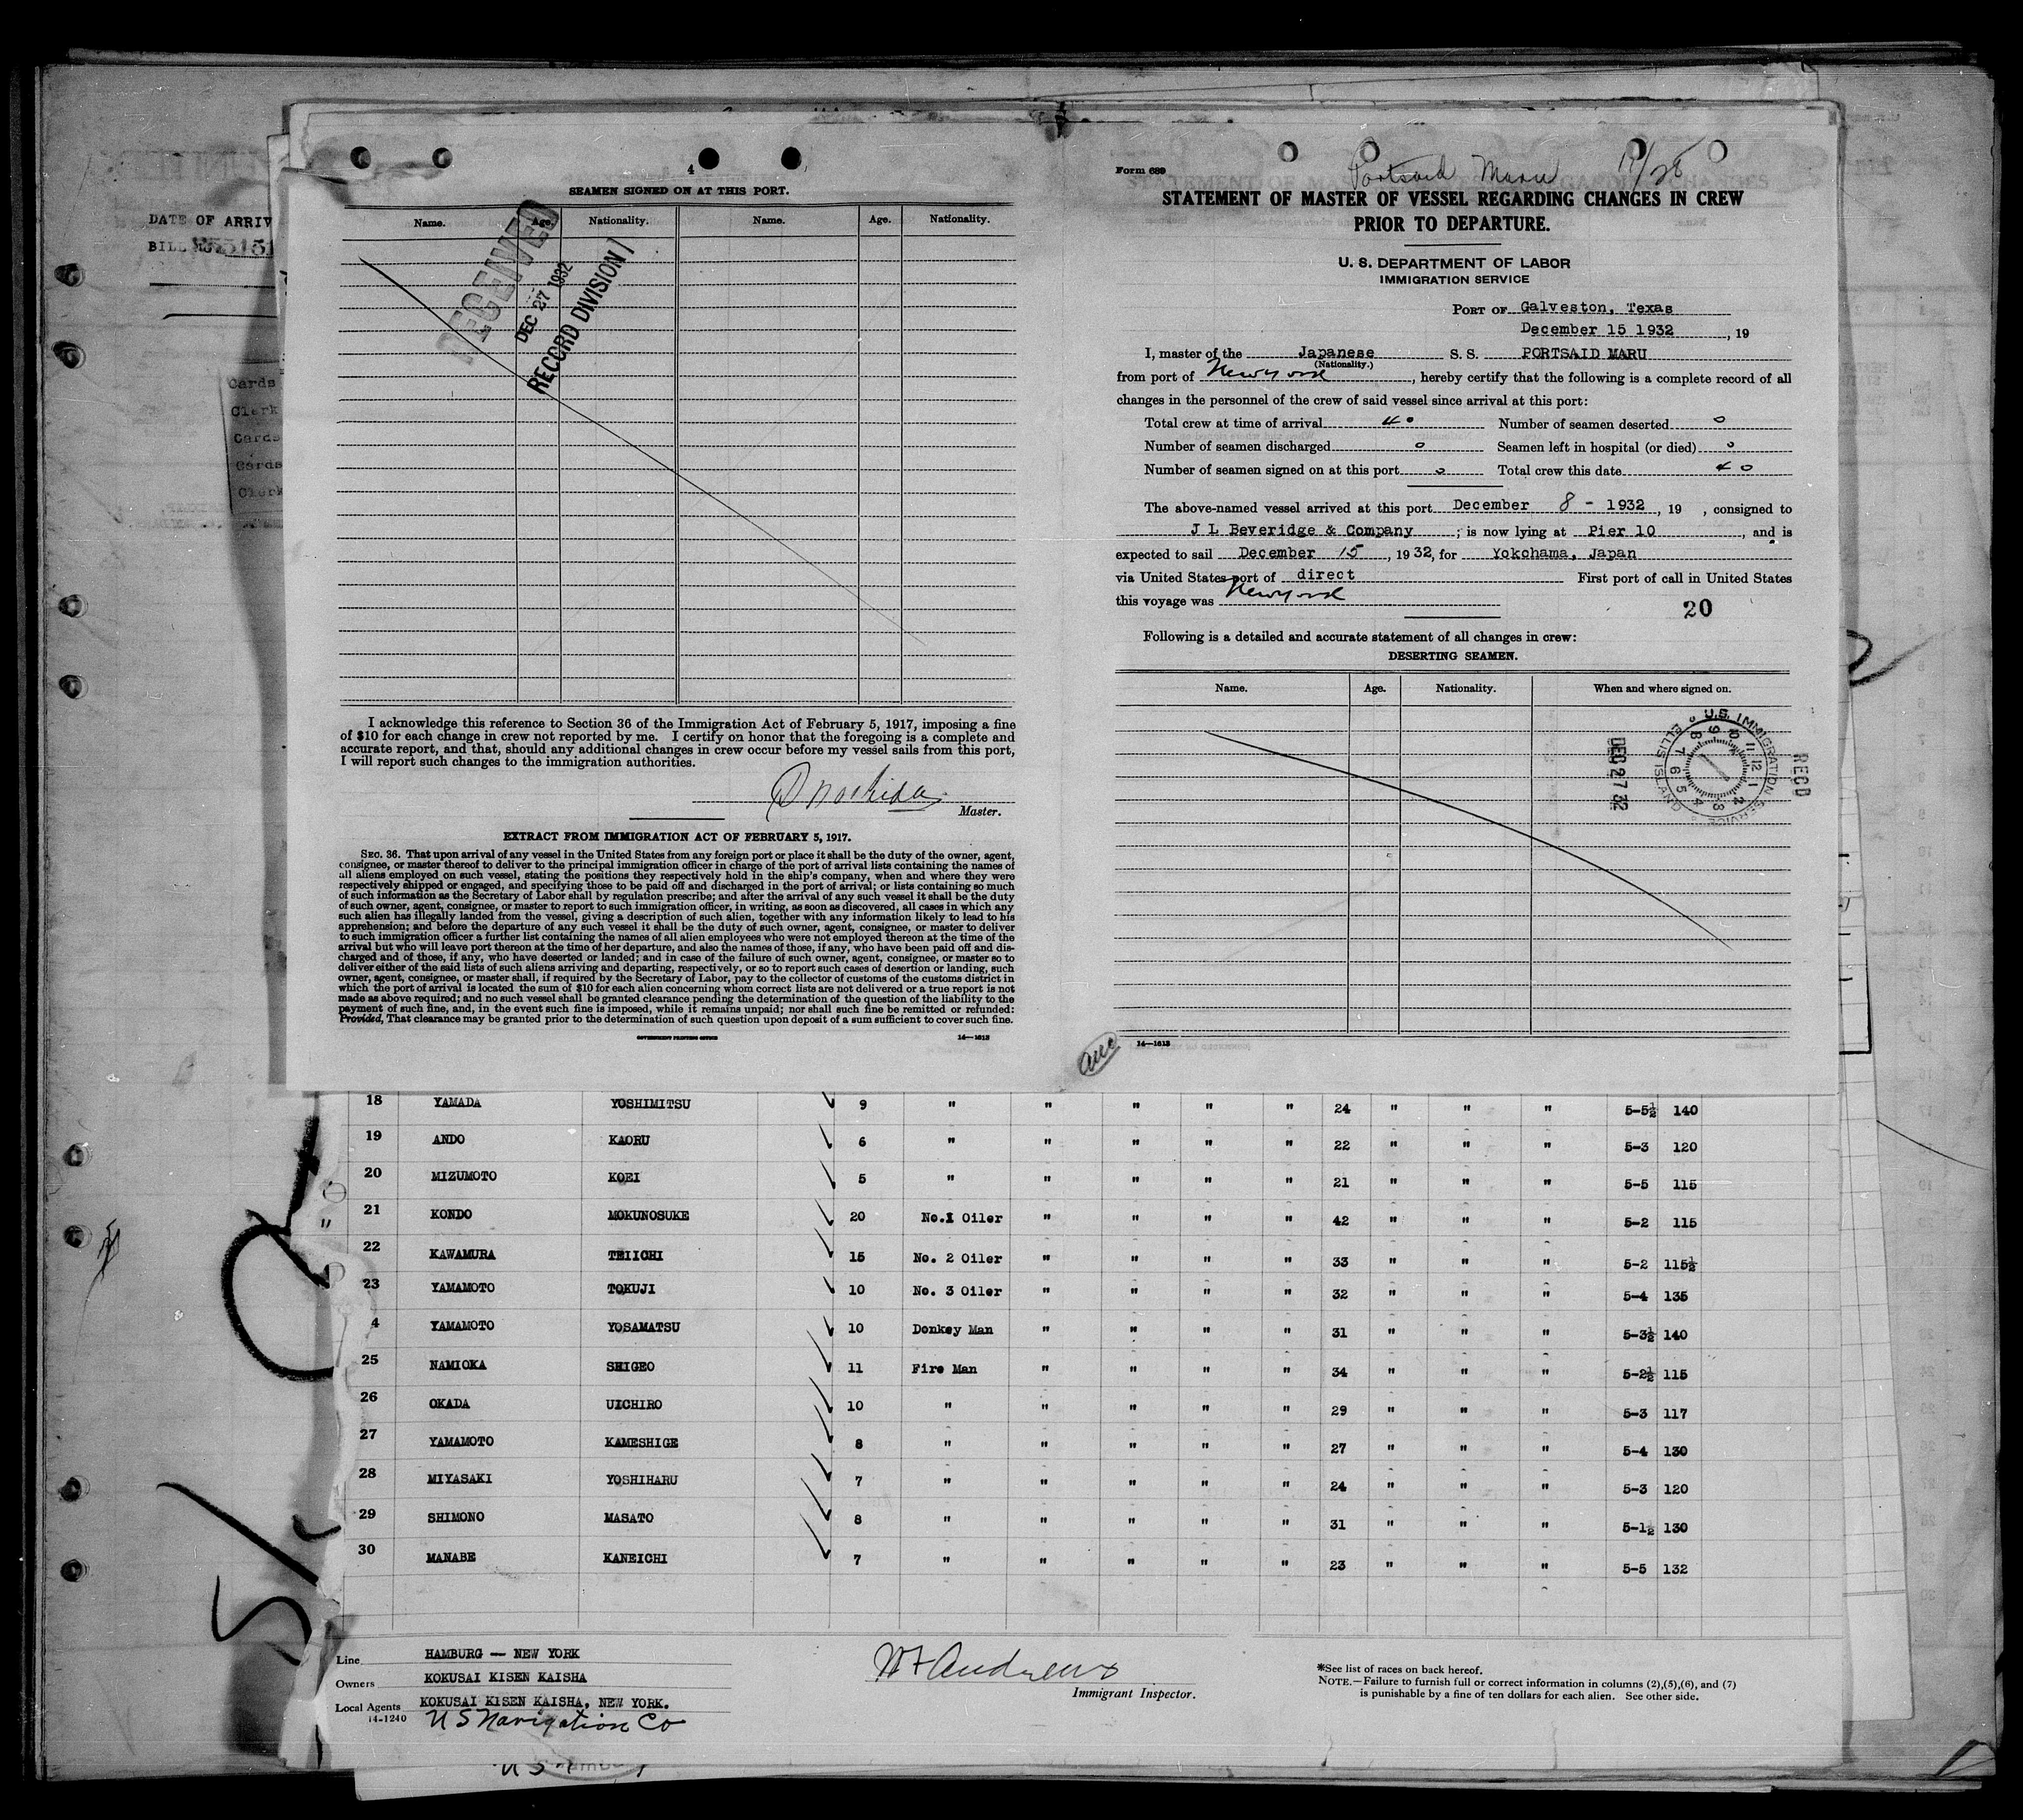 DATE OF ARRIV
BILL
Cards
Clerk
Cards
Cards
Clerk
4
SEAMEN SIGNED ON AT THIS PORT.
Name. Age. Nationality. Name. Age. Nationality.
RECEIVED
DEC 27 1932
RECORD DIVISION
I acknowledge this reference to Section 36 of the Immigration Act of February 5, 1917, imposing a fine
of $10 for each change in crew not reported by me. I certify on honor that the foregoing is a complete and
accurate report, and that, should any additional changes in crew occur before my vessel sails from this port,
I will report such changes to the immigration authorities.
Master.
EXTRACT FROM IMMIGRATION ACT OF FEBRUARY 5, 1917.
SEC. 36. That upon arrival of any vessel in the United States from any foreign port or place it shall be the duty of the owner, agent,
consignee, or master thereof to deliver to the principal immigration officer in charge of the port of arrival lists containing the names of
all aliens employed on such vessel, stating the positions they respectively hold in the ship's company, when and where they were
respectively shipped or engaged, and specifying those to be paid off and discharged in the port of arrival; or lists containing so much
of such information as the Secretary of Labor shall by regulation prescribe; and after the arrival of any such vessel it shall be the duty
of such owner, agent, consignee, or master to report to such immigration officer, in writing, as soon as discovered, all cases in which any
such alien has illegally landed from the vessel, giving a description of such alien, together with any information likely to lead to his
apprehension; and before the departure of any such vessel it shall be the duty of such owner, agent, consignee, or master to deliver
to such immigration officer a further list containing the names of all alien employees who were not employed thereon at the time of the
arrival but who will leave port thereon at the time of her departure, and also the names of those, if any, who have been paid off and dis-
charged and of those, if any, who have deserted or landed; and in case of the failure of such owner, agent, consignee, or master so to
deliver either of the said lists of such aliens arriving and departing, respectively, or so to report such cases of desertion or landing, such
owner, agent, consignee, or master shall, if required by the Secretary of Labor, pay to the collector of customs of the customs district in
which the port of arrival is located the sum of $10 for each alien concerning whom correct lists are not delivered or a true report is not
made as above required; and no such vessel shall be granted clearance pending the determination of the question of the liability to the
payment of such fine, and, in the event such fine is imposed, while it remains unpaid; nor shall such fine be remitted or refunded:
Provided, That clearance may be granted prior to the determination of such question upon deposit of a sum sufficient to cover such fine.
GOVERNMENT PRINTING OFFICE 14—1613
Form 689 Portsaid Maru
STATEMENT OF MASTER OF VESSEL REGARDING CHANGES IN CREW
PRIOR TO DEPARTURE.
U. S. DEPARTMENT OF LABOR
IMMIGRATION SERVICE
PORT OF Galveston, Texas
December 15 1932, 19
I, master of the Japanese S. S. PORTSAID MARU
(Nationality.)
from port of Newyork, hereby certify that the following is a complete record of all
changes in the personnel of the crew of said vessel since arrival at this port:
Total crew at time of arrival 40 Number of seamen deserted 0
Number of seamen discharged 0 Seamen left in hospital (or died) 0
Number of seamen signed on at this port 0 Total crew this date 40
The above-named vessel arrived at this port December 8 - 1932, 19 , consigned to
J L Beveridge & Company ; is now lying at Pier 10 , and is
expected to sail December 15, 1932, for Yokohama, Japan
via United States port of direct First port of call in United States
this voyage was Newyork
20
Following is a detailed and accurate statement of all changes in crew:
DESERTING SEAMEN.
Name. Age. Nationality. When and where signed on.
U.S. IMMIGRATION SERVICE ELLIS ISLAND
REC'D
DEC 27 32
14—1613
18 YAMADA YOSHIMITSU 9 " " " " " 24 " " " 5-5½ 140
19 ANDO KAORU 6 " " " " " 22 " " " 5-3 120
20 MIZUMOTO KOEI 5 " " " " " 21 " " " 5-5 115
21 KONDO MOKUNOSUKE 20 No.1 Oiler " " " " 42 " " " 5-2 115
22 KAWAMURA TEIICHI 15 No. 2 Oiler " " " " 33 " " " 5-2 115½
23 YAMAMOTO TOKUJI 10 No. 3 Oiler " " " " 32 " " " 5-4 135
4 YAMAMOTO YOSAMATSU 10 Donkey Man " " " " 31 " " " 5-3½ 140
25 NAMIOKA SHIGEO 11 Fire Man " " " " 34 " " " 5-2½ 115
26 OKADA UICHIRO 10 " " " " " 29 " " " 5-3 117
27 YAMAMOTO KAMESHIGE 8 " " " " " 27 " " " 5-4 130
28 MIYASAKI YOSHIHARU 7 " " " " " 24 " " " 5-3 120
29 SHIMONO MASATO 8 " " " " " 31 " " " 5-1½ 130
30 MANABE KANEICHI 7 " " " " " 23 " " " 5-5 132
Line HAMBURG — NEW YORK
Owners KOKUSAI KISEN KAISHA
Local Agents KOKUSAI KISEN KAISHA, NEW YORK.
14-1240 U S Navigation Co
W F Andrews
Immigrant Inspector.
*See list of races on back hereof.
NOTE.—Failure to furnish full or correct information in columns (2),(5),(6), and (7)
is punishable by a fine of ten dollars for each alien. See other side.